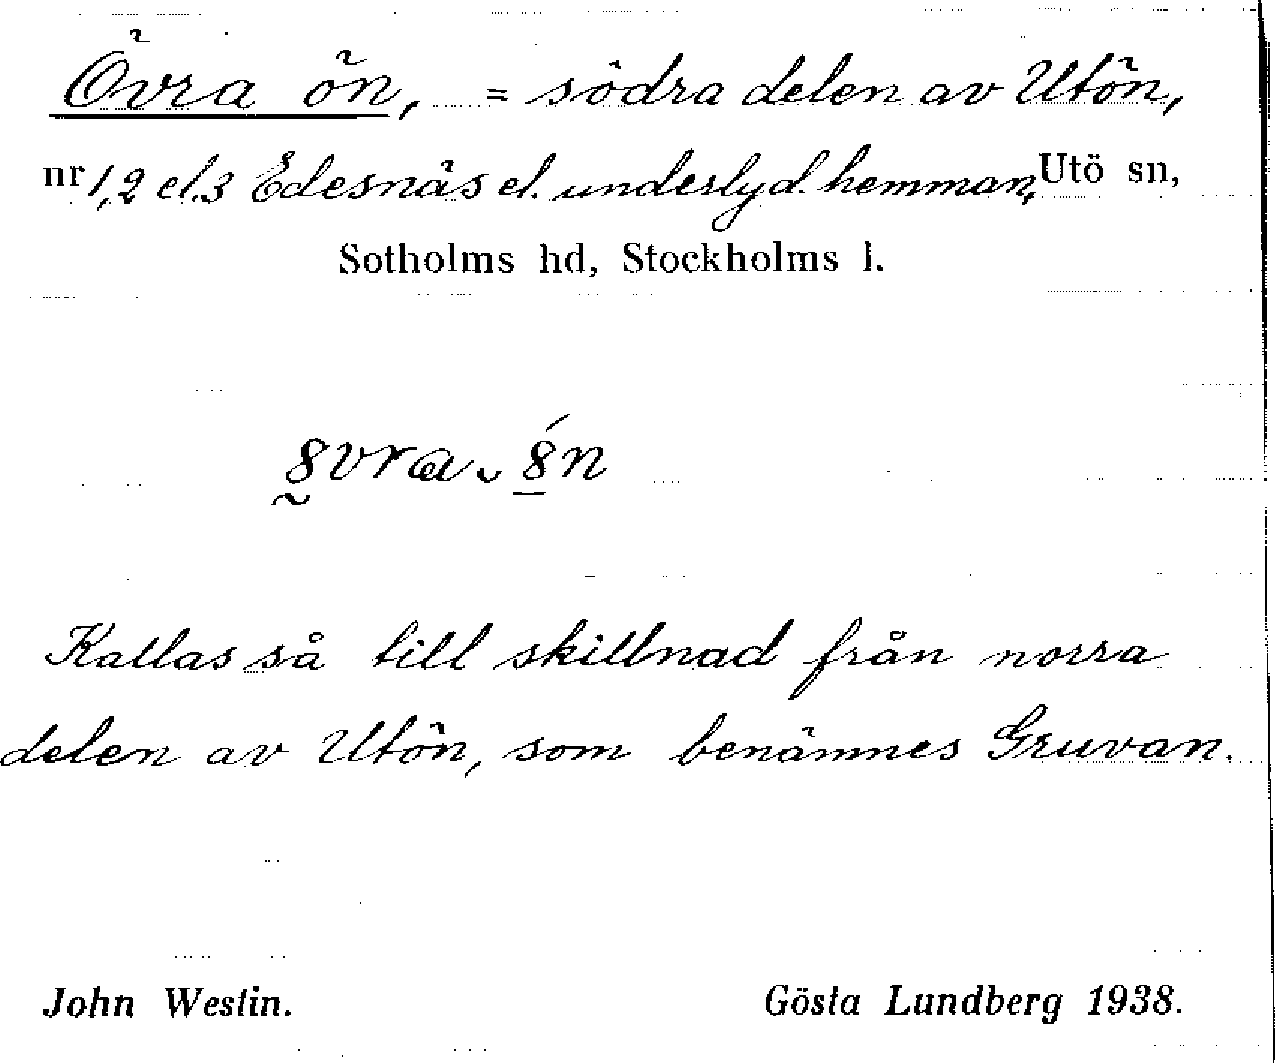 Övra ön, = södra delen av Utön,
nr 1,2 el.3 Edesnäs el. underlyd. hemman, Utö sn,
Sotholms hd, Stockholms l.
Kallas så till skillnad från norra
delen av Utön, som benämnes Gruvan.
John Westin. Gösta Lundberg 1938.